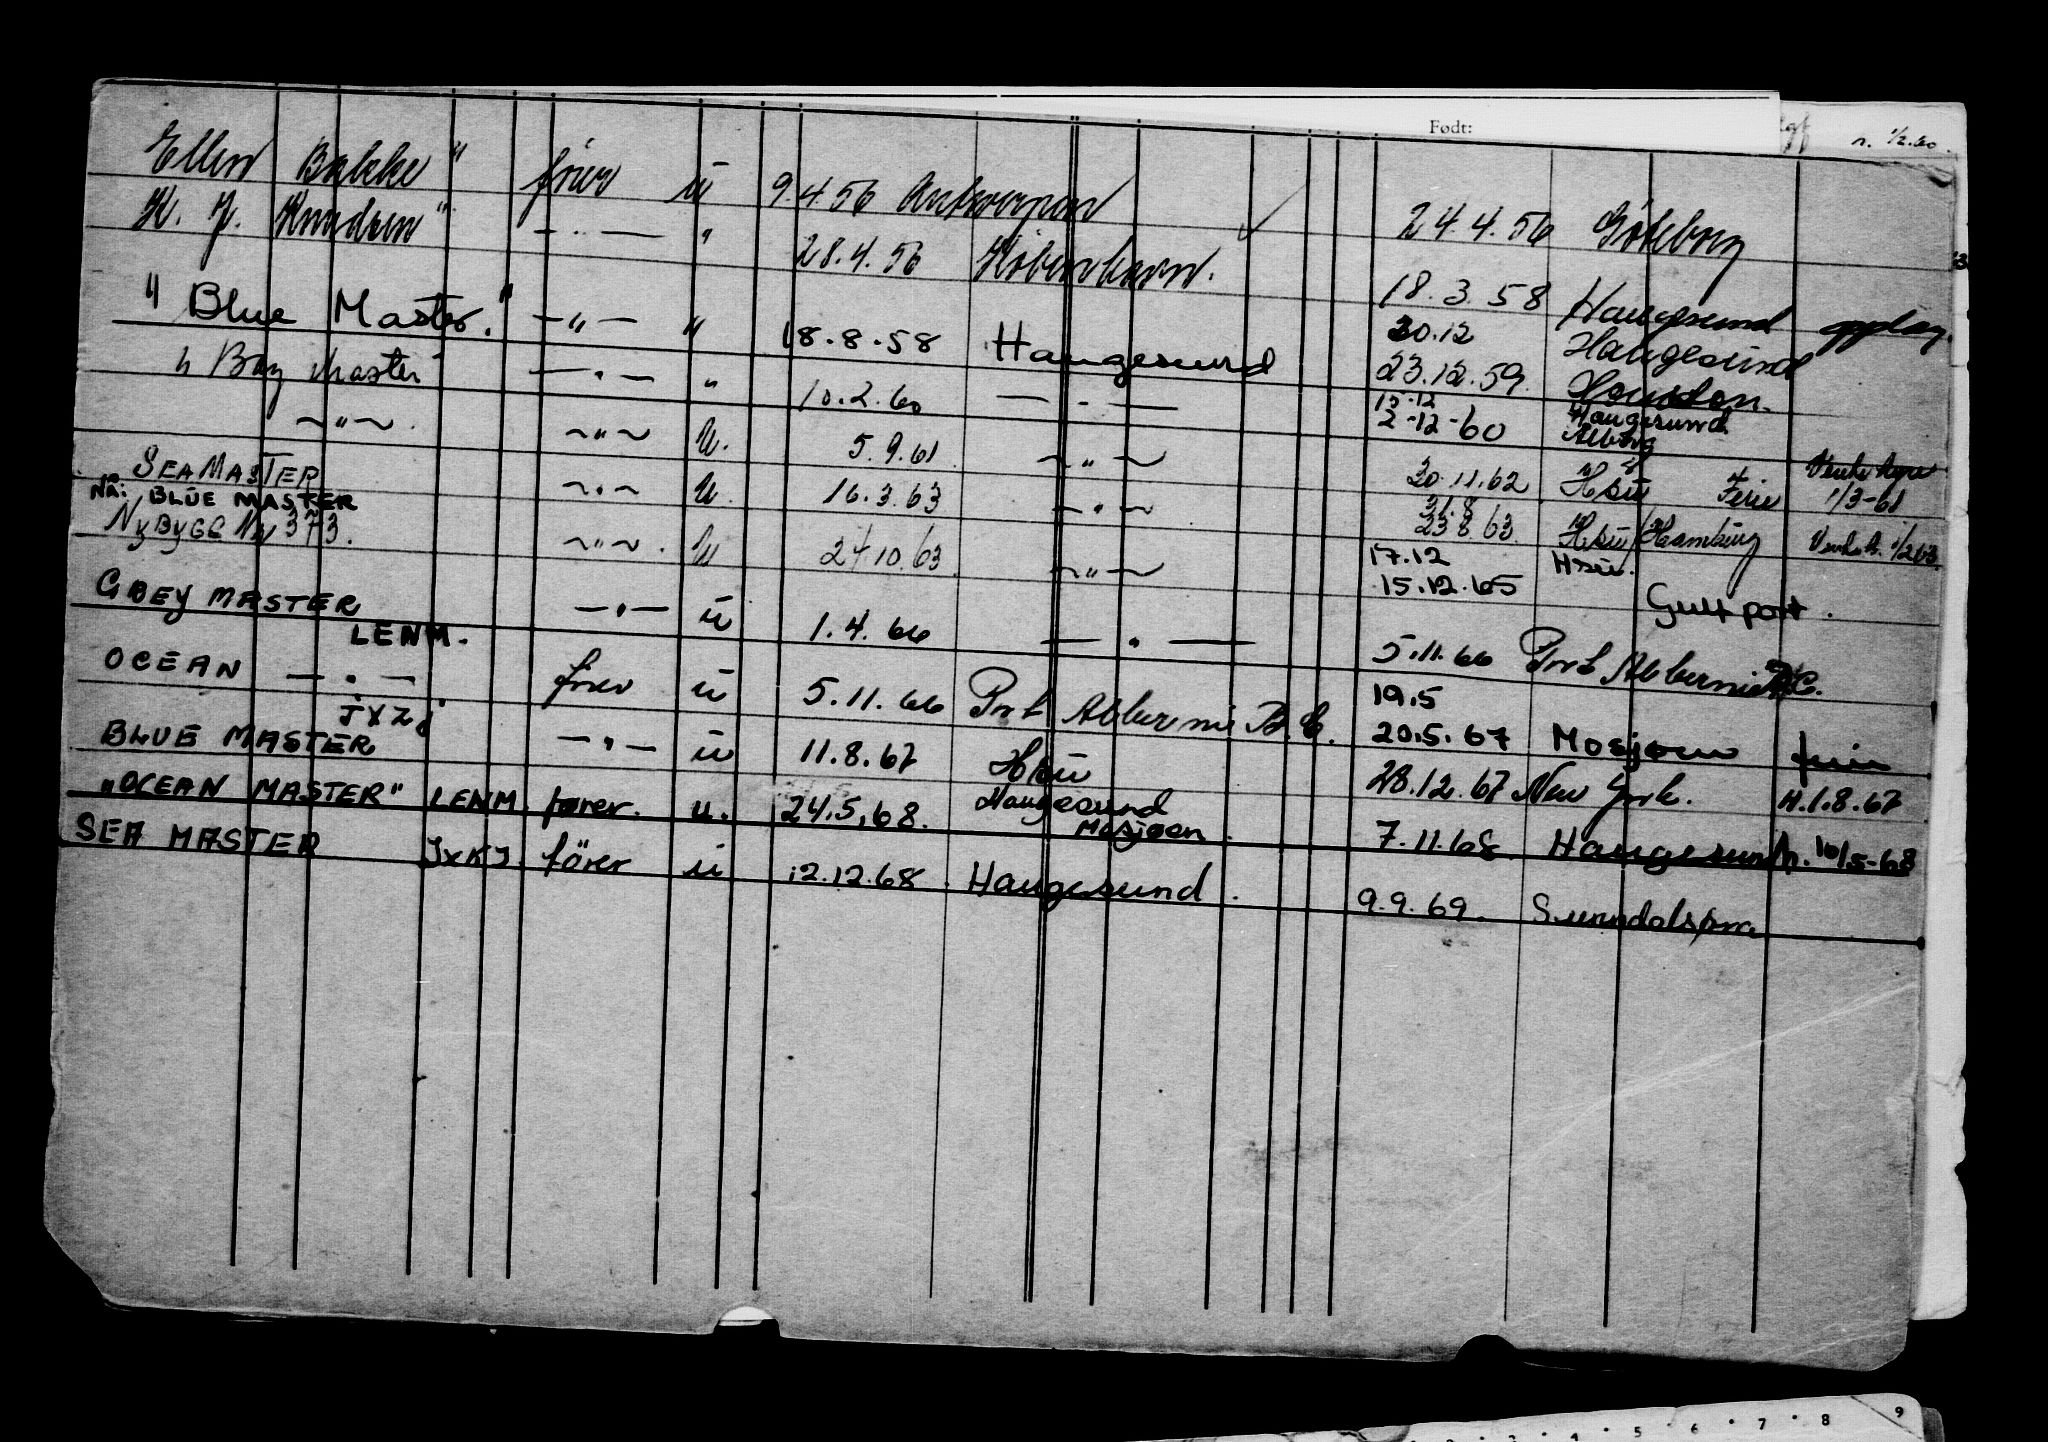 Født:
n. 1/2.60.
Ellen Bakke" fører u 9.4.56 Antwerpen ✓ 24.4.56 Göteborg
K. J. Knudsen" — " — " 28.4.56 København. 18.3.58 Haugesund opplag.
" Blue Master." — " — " 18.8.58 Haugesund 20.12 Haugesund
23.12.59. Houston.
" Bay Master" — " — " 10.2.60 — " — 15.12 Haugesund
2-12-60 Ålborg
~ " ~. ~ " ~ u. 5.9.61 ~ " ~ 30.11.62 Hsu Ferie 1/3-61
SEA MASTER ~ " ~ u. 16.3.63 ~ " ~ 31.8
23.8.63. Hsu/Hamburg 1/2 63.
Nå: BLUE MASTER
NyBYGG Nr 373. ~ " ~. u 24.10.63. ~ " ~ 17.12 Hsu.
15.12.65 Gulfport.
GREY MASTER — " — u 1.4.66 — " — 5.11.66 Port Alberni B.C.
LENM.
OCEAN — " — fører u 5.11.66 Port Alberni B.C. 19.5
20.5.67 Mosjøen ferie
JXZJ
BLUE MASTER — " — u 11.8.67 Hsu 28.12.67 New York. n.1.8.67
"OCEAN MASTER" LENM. fører. u. 24.5.68. Haugesund
Mosjøen. 7.11.68. Haugesund n. 10/5-68
SEA MASTER JXKJ. fører u 12.12.68. Haugesund. 9.9.69. Sunndalsøra
5 6 7 8 9